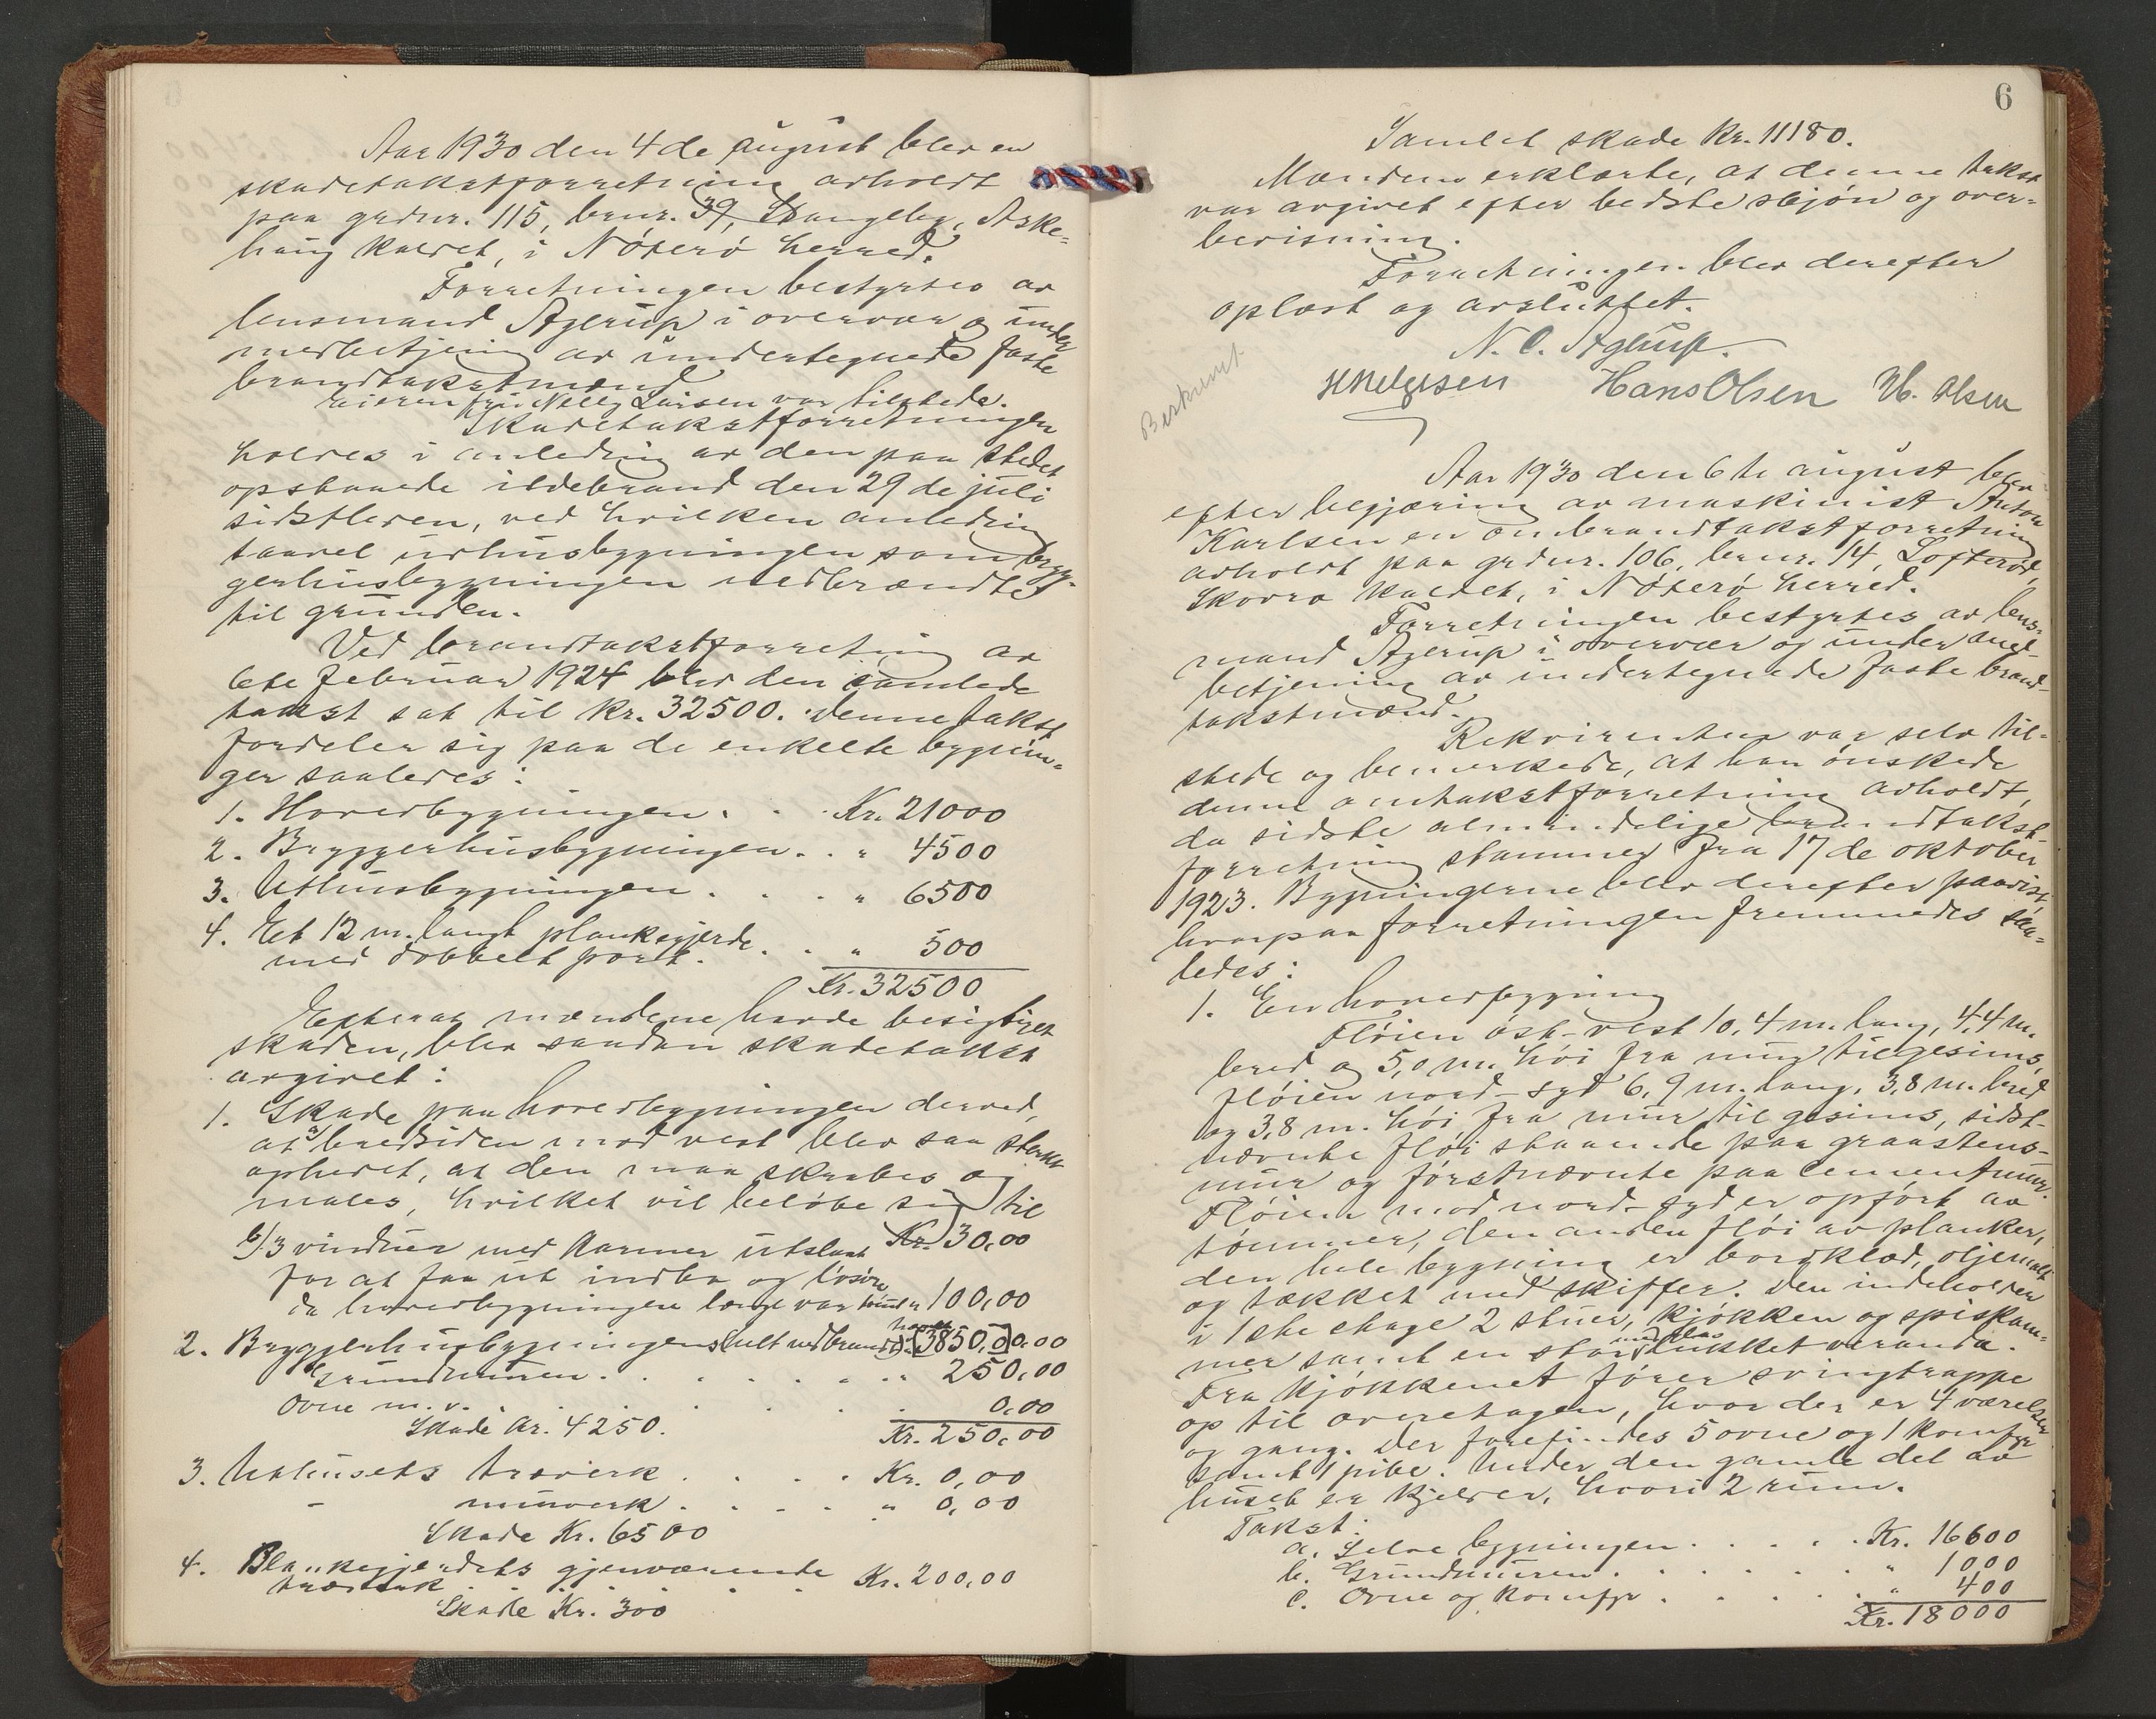 Aar 1930 den 4de august blev en
skadetakstforretning avholdt
paa grdnr. 115, brnr. 39, Aske-
haug kaldet, i Nöterö herred.
Forretningen bestyrtes av
lensmand Agerup i overvær og under
medbetjening av undertegnede faste
brandtakstmænd
eieren fru Nelly Larsen var tilstede.
Skadetakstforretningen
holdes i anledning av den paa stedet
opstaaede ildebrand den 29de juli
sidstleden, ved hvilken anledning
saavel uthusbygningen som bryg-
gerhusbygningen nedbrændte
til grunden.
Ved brandtakstforretning av
6te februar 1924 blev den samlede
takst sat til kr. 32500. Denne takst
fordeler sig paa de enkelte bygnin-
ger saaledes:
1. Hovedbygningen. . . Kr. 21000
2. Bryggerhusbygningen. . " 4500
3. Uthusbygningen . . . " 6500
4. Et 12 m. langt plankegjerde
med dobbelt port. . . . " 500
Kr. 32500
Efterat mændene havde besigtiget
skaden, blev saadan skadetakst
avgivet:
1. Skade paa hovedbygningen derved,
at a) bredsiden mod vest blev saa sterkt
ophetet, at den maa skrabes og
males, hvilket vil beløbe sig til
Kr. 30,00
b) 3 vinduer med karmer utslaat
for at faa ut indbo og lösöre
da hovedbygningen længe var truet " 100,00
2. Bryggerhusbygningen (helt nedbrændt) [3850,0] 0,00
Grundmuren. . . . . . " 250,00
Ovne m.v. . . . . . 0,00
Skade kr. 4250. Kr. 250,00
3. Uthusets træverk . . . . Kr. 0,00
- murverk . . . . " 0,00
Skade Kr. 6500
4. Plankegjerdets gjenværende
træverk . . . . . . Kr. 200,00
Skade Kr. 300
6
Samlet skade Kr. 11180.
Mændene erklærte, at denne takst
var avgivet efter bedste skjön og over-
bevisning.
Forretningen blev derefter
oplæst og avsluttet.
N. C. Agerup.
HHelgesen Hans Olsen H. Olsen
Beskrevet
Aar 1930 den 6te august blev
efter begjæring av maskinist Anton
Karlsen en ombrandtakstforretning
avholdt paa grdnr. 106, brnr. 14, Lofteröd,
Skovro kaldet, i Nöterö herred.
Forretningen bestyrtes av lens-
mand Agerup i overvær og under med-
betjening av undertegnede faste brand-
takstmænd.
Rekvirenten var selv til-
stede og bemerkede, at han önskede
denne omtakstforretning avholdt,
da sidste almindelige brandtakst-
forretning stammer fra 17de oktober
1923. Bygningerne blev derefter paavist,
hvorpaa forretningen fremmedes saa-
ledes:
1. En hovedbygning
Flöien öst-vest 10,4 m. lang, 4,4 m.
bred og 5,0 m. höi fra mur til gesims,
flöien nord-syd 6,9 m. lang, 3,8 m. bred
og 3,8 m. höi fra mur til gesims, sidst-
nævnte flöi staaende paa graastens-
mur og förstnævnte paa cementmur.
Flöien mod nord-syd er opfört av
tömmer, den anden flöi av planker,
den hele bygning er bordklæd, oljemalt
og tækket med skiffer. Den indeholder
i 1ste etage 2 stuer, kjökken og spiskam-
mer samt en stor med glas lukket veranda.
Fra kjökkenet förer svingtrappe
op til overetagen, hvor der er 4 værelser
og gang. Der forefindes 5 ovne og 1 komfyr
samt 1 pibe. Under den gamle del av
huset er kjelder, hvori 2 rum.
Takst:
a. Selve bygningen . . . . Kr. 16600
b. Grundmuren . . . . . " 1000
c. Ovne og komfyr . . . . " 400
Kr. 18000